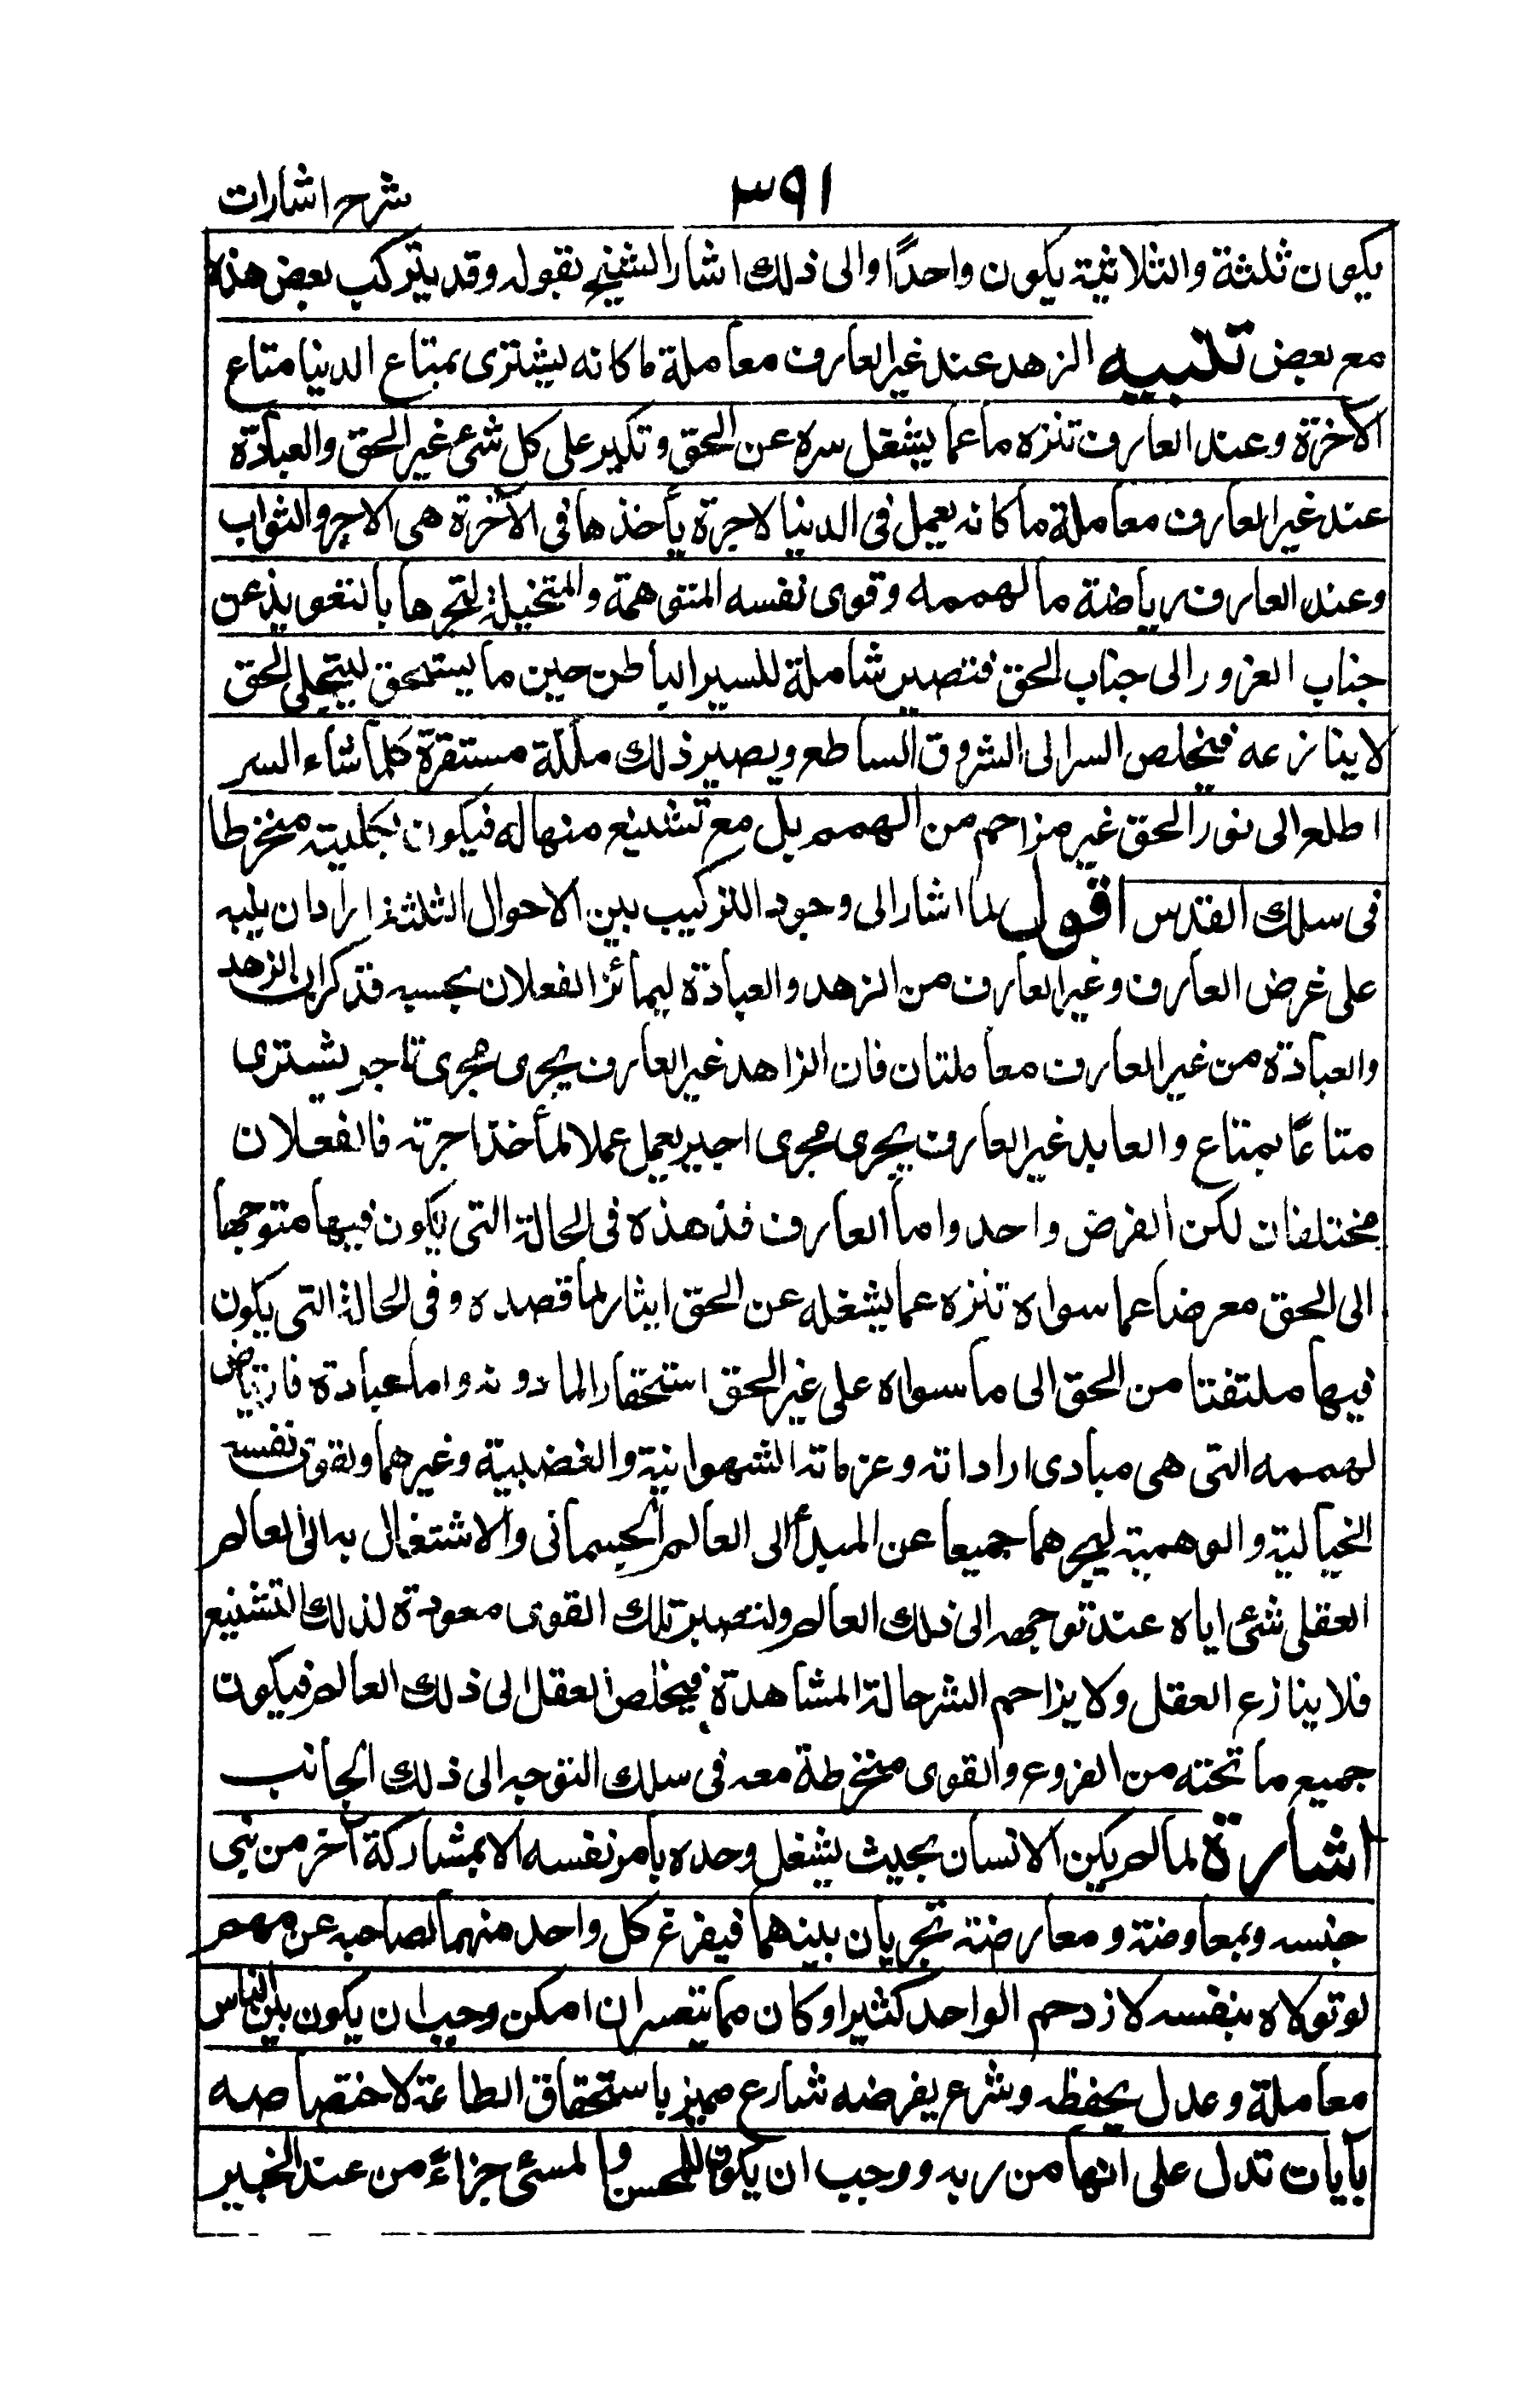 شرح اشارات
٣٩١
يكون ثلثة والثلاثية يكون واحدًا والى ذلك اشار الشيخ بقوله وقد يتركب بعض هذه
مع بعض تنبيه الزهد عند غير العارف معاملة ما كانه يشترى بمتاع الدنيا متاع
الآخرة وعند العارف تنزه ما عما يشغل سره عن الحق وتكبر على كل شئ غير الحق والعبادة
عند غير العارف معاملة ما كانه يعمل فى الدنيا لاجرة يأخذها فى الآخرة هى الاجر والثواب
وعند العارف رياضة ما لهممه وقوى نفسه المتوهمة والمتخيلة ليجرها بالتعويذ عن
جناب الغرور الى جناب الحق فتصير شاملة للسير الباطن حين ما يستحق ليتجلى الحق
لا ينازعه فيخلص السر الى الشروق الساطع ويصير ذلك ملكة مستقرة كلما شاء السر
اطلع الى نور الحق غير مزاحم من الهمم بل مع تشييع منها له فيكون بكليته منخرطا
فى سلك القدس اقول لما اشار الى وجود التركيب بين الاحوال الثلثة اراد ان ينبه
على غرض العارف وغير العارف من الزهد والعبادة ليمائز الفعلان بحسبه فذكر ان الزهد
والعبادة من غير العارف معاملتان فان الزاهد غير العارف يجرى مجرى تاجر يشترى
متاعًا بمتاع والعابد غير العارف يجرى مجرى اجير يعمل عملا لأخذ اجرته فالفعلان
مختلفان لكن الغرض واحد واما العارف فزهده فى الحالة التى يكون فيها متوجها
الى الحق معرضا عما سواه تنزه عما يشغله عن الحق ايثار لما قصده وفى الحالة التى يكون
فيها ملتفتا من الحق الى ما سواه على غير الحق استحقارا لما دونه واما عبادة فارتياض
لهممه التى هى مبادى اراداته وعزماته الشهوانية والغضبية وغيرهما ولقوى نفسه
الخيالية والوهمية ليجرهما جميعا عن الميل الى العالم الجسمانى والاشتغال به الى العالم
العقلى شئ اياه عند توجهه الى ذلك العالم ولتصير تلك القوى معودة لذلك التشييع
فلا ينازع العقل ولا يزاحم السر حالة المشاهدة فيخلص العقل الى ذلك العالم فيكون
جميع ما تحته من الفروع والقوى منخرطة معه فى سلك التوجه الى ذلك الجانب
اشارة لما لم يكن الانسان بحيث يشغل وحده بأمر نفسه الا بمشاركة آخر من بنى
جنسه وبمعاوضة ومعارضة تجريان بينهما فيفرغ كل واحد منهما لصاحبه عن مهم
لو تولاه بنفسه لازدحم الواحد كثيرا وكان مما يتعسر ان امكن وجب ان يكون بين الناس
معاملة وعدل يحفظه وشرع يفرضه شارع مميز باستحقاق الطاعة لاختصاصه
بآيات تدل على انها من ربه ووجب ان يكون للمحسن والمسئ جزاءً من عند الخبير